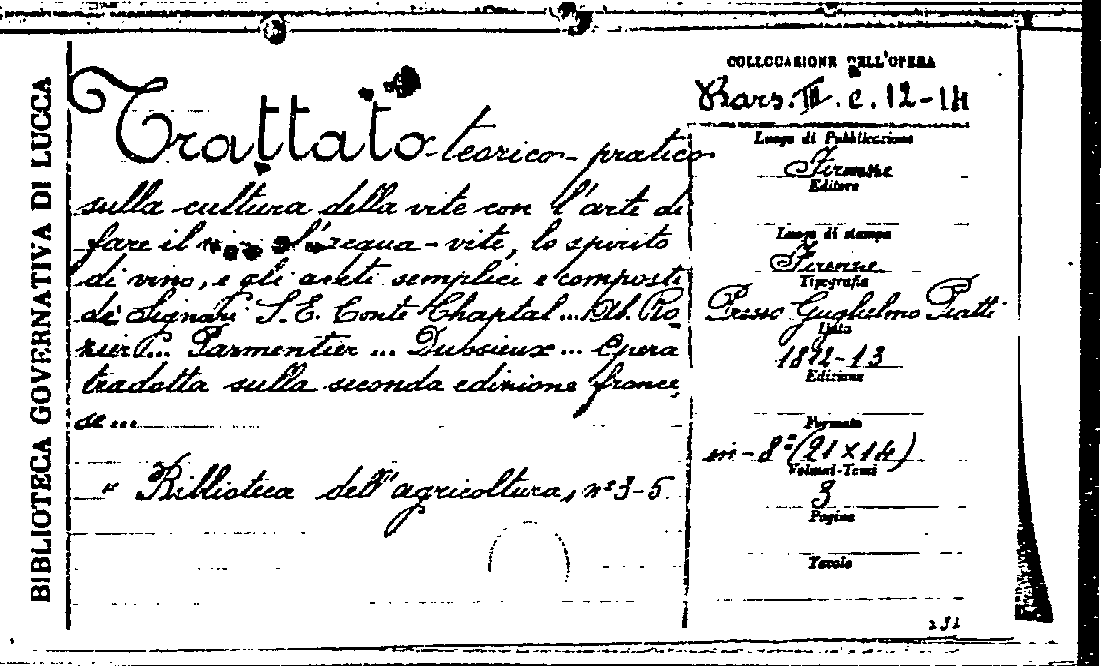 BIBLIOTECA GOVERNATIVA DI LUCCA
Trattato teorico-pratico
sulla cultura della vite con l'arte di
fare il l'acqua-vite, lo spirito
di vino, e gli aceti semplici e composti
de' Signori S. E. Conte Chaptal ... Ab. Ro
zier ... Parmentier ... Dussieux ... Opera
tradotta sulla seconda edizione france
se ...
" Biblioteca dell'agricoltura, nº 3-5
COLLOCAZIONE DELL'OPERA
Bars. III. c. 12-14
Luogo di Pubblicazione
Firenze
Editore
Luogo di stampa
Firenze
Tipografia
Presso Guglielmo Piatti
Data
1812-13
Edizione
Formato
in-8º (21 x 14)
Volumi-Tomi
3
Pagine
Tavole